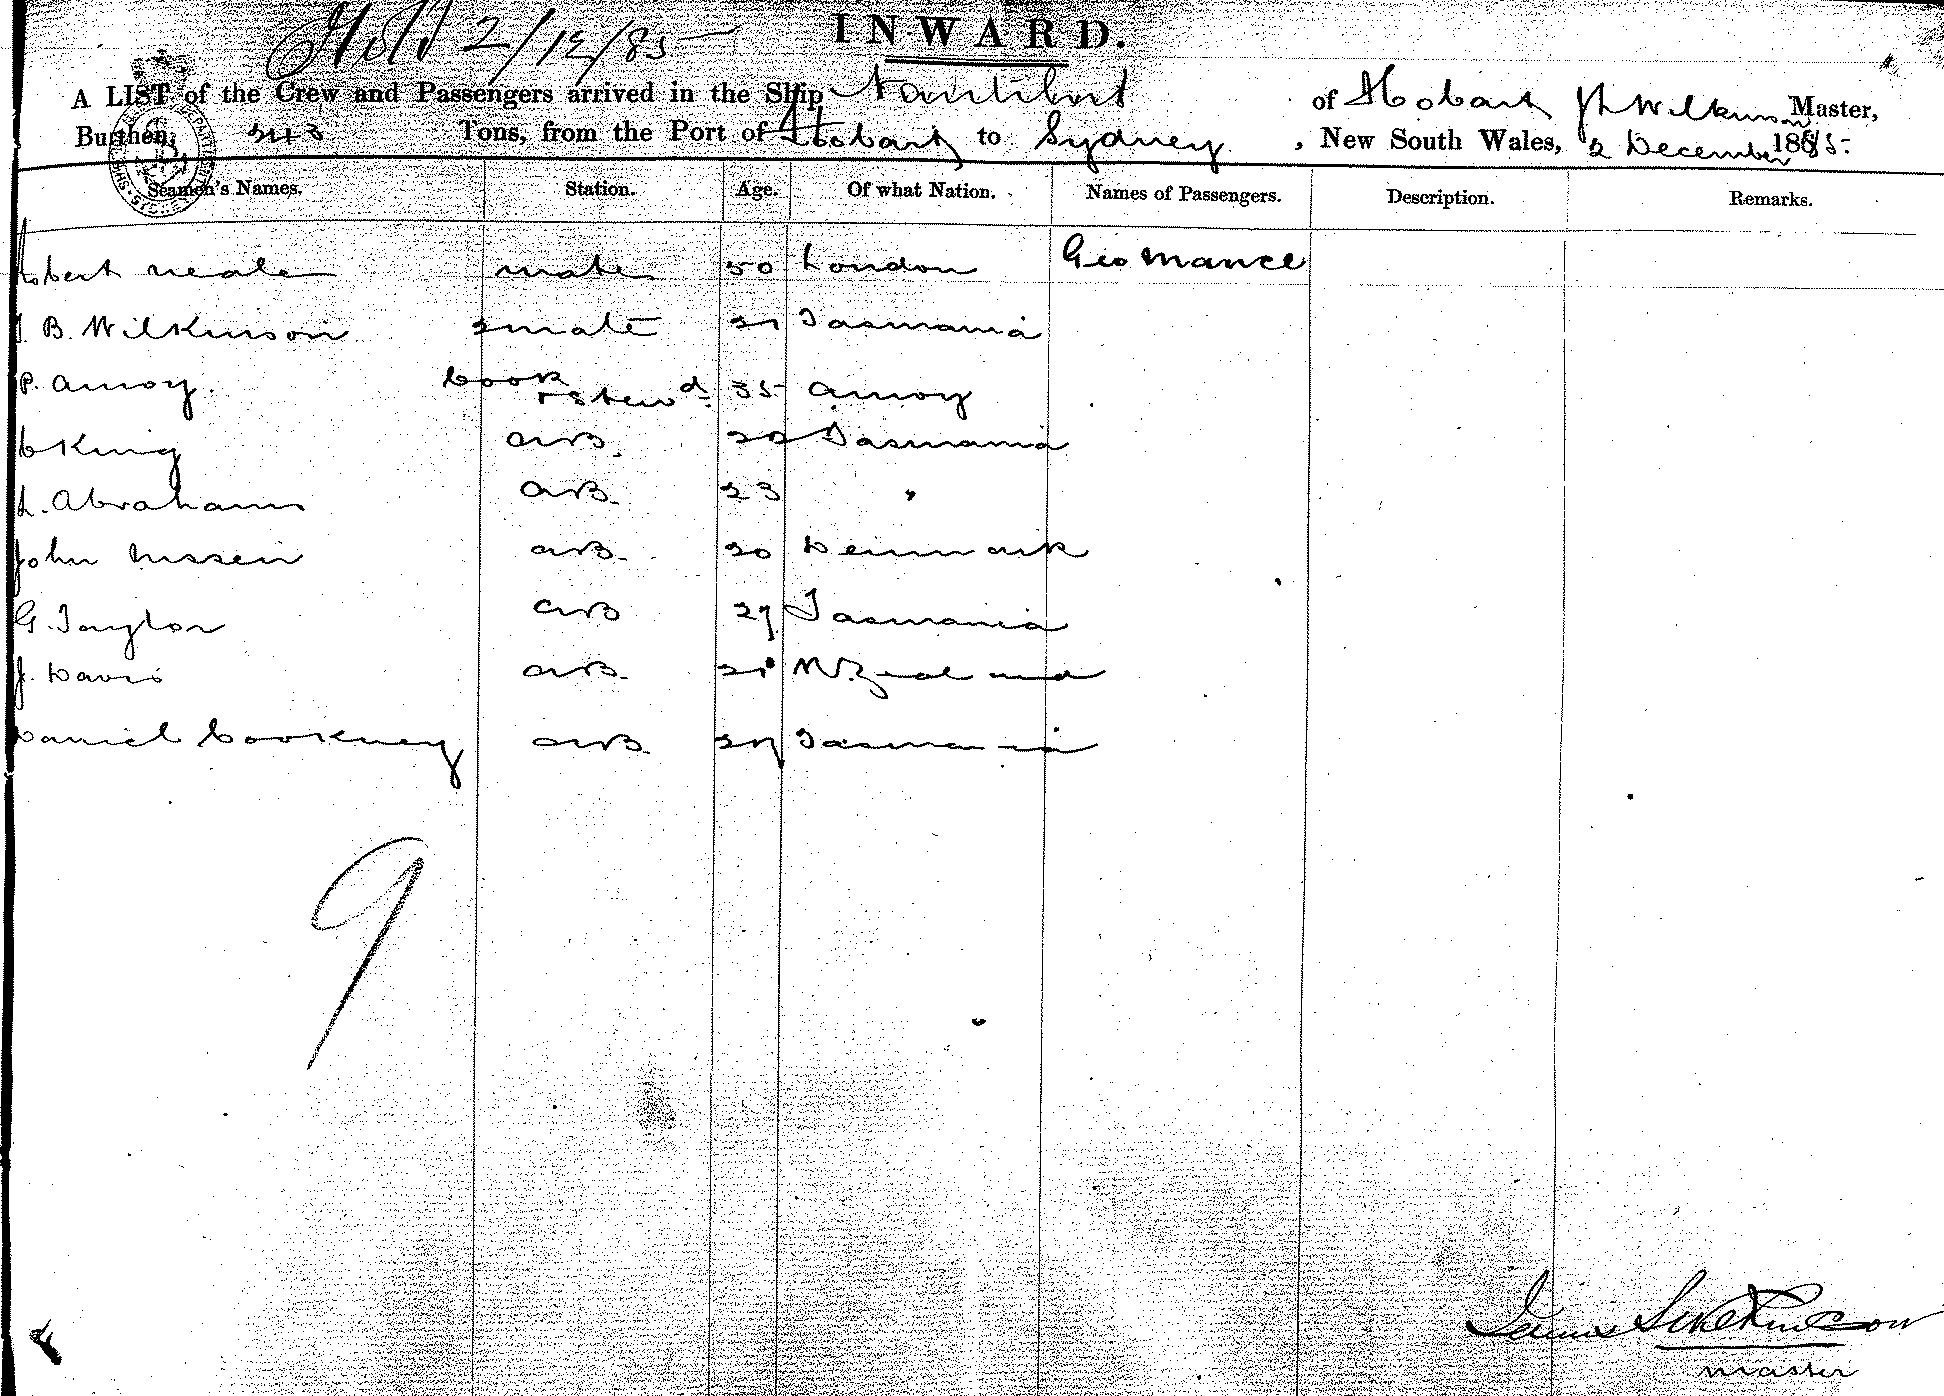 Held 2/12/85
INWARD.
A LIST of the Crew and Passengers arrived in the Ship Nautilus of Hobart Wilkinson Master,
Burthen, 243 Tons, from the Port of Hobart to Sydney, New South Wales, 2 December 1885.
Seamen's Names. Station. Age. Of what Nation. Names of Passengers. Description. Remarks.
Robert Neale mate 50 London Geo Mance
J. B. Wilkinson 2 mate 21 Tasmania
P. Amoy Cook & Stewd 35 Amoy
C King AB. 20 Tasmania
L. Abrahams AB. 23 "
John Nissen AB. 20 Denmark
G. Taylor AB 27 Tasmania
J. Davis AB. 21 N. Zealand
Daniel Cookney AB 27 Tasmania
9
James Wilkinson
master